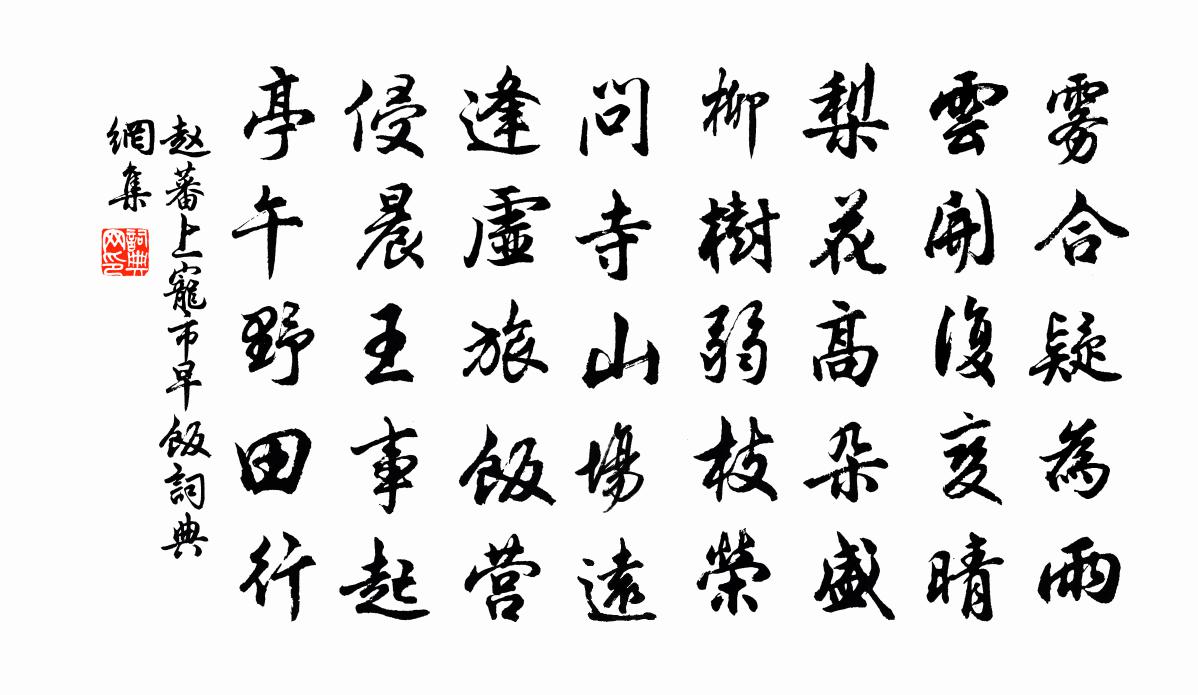 雾合疑為雨
雲開復变晴
梨花高朵盛
柳樹弱枝榮
问寺山場遠
逢虛旅飯营
侵晨王事起
亭午野田行
赵蕃上寵市早飯詞典
網集
詞典
网印